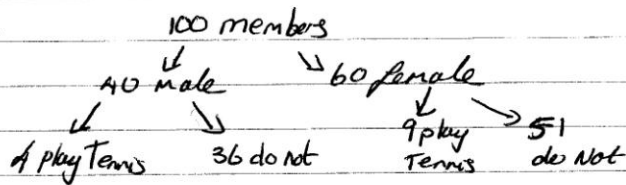 100 members
40 male 60 female
4 play Tennis 36 do not 9 play Tennis 51 do Not